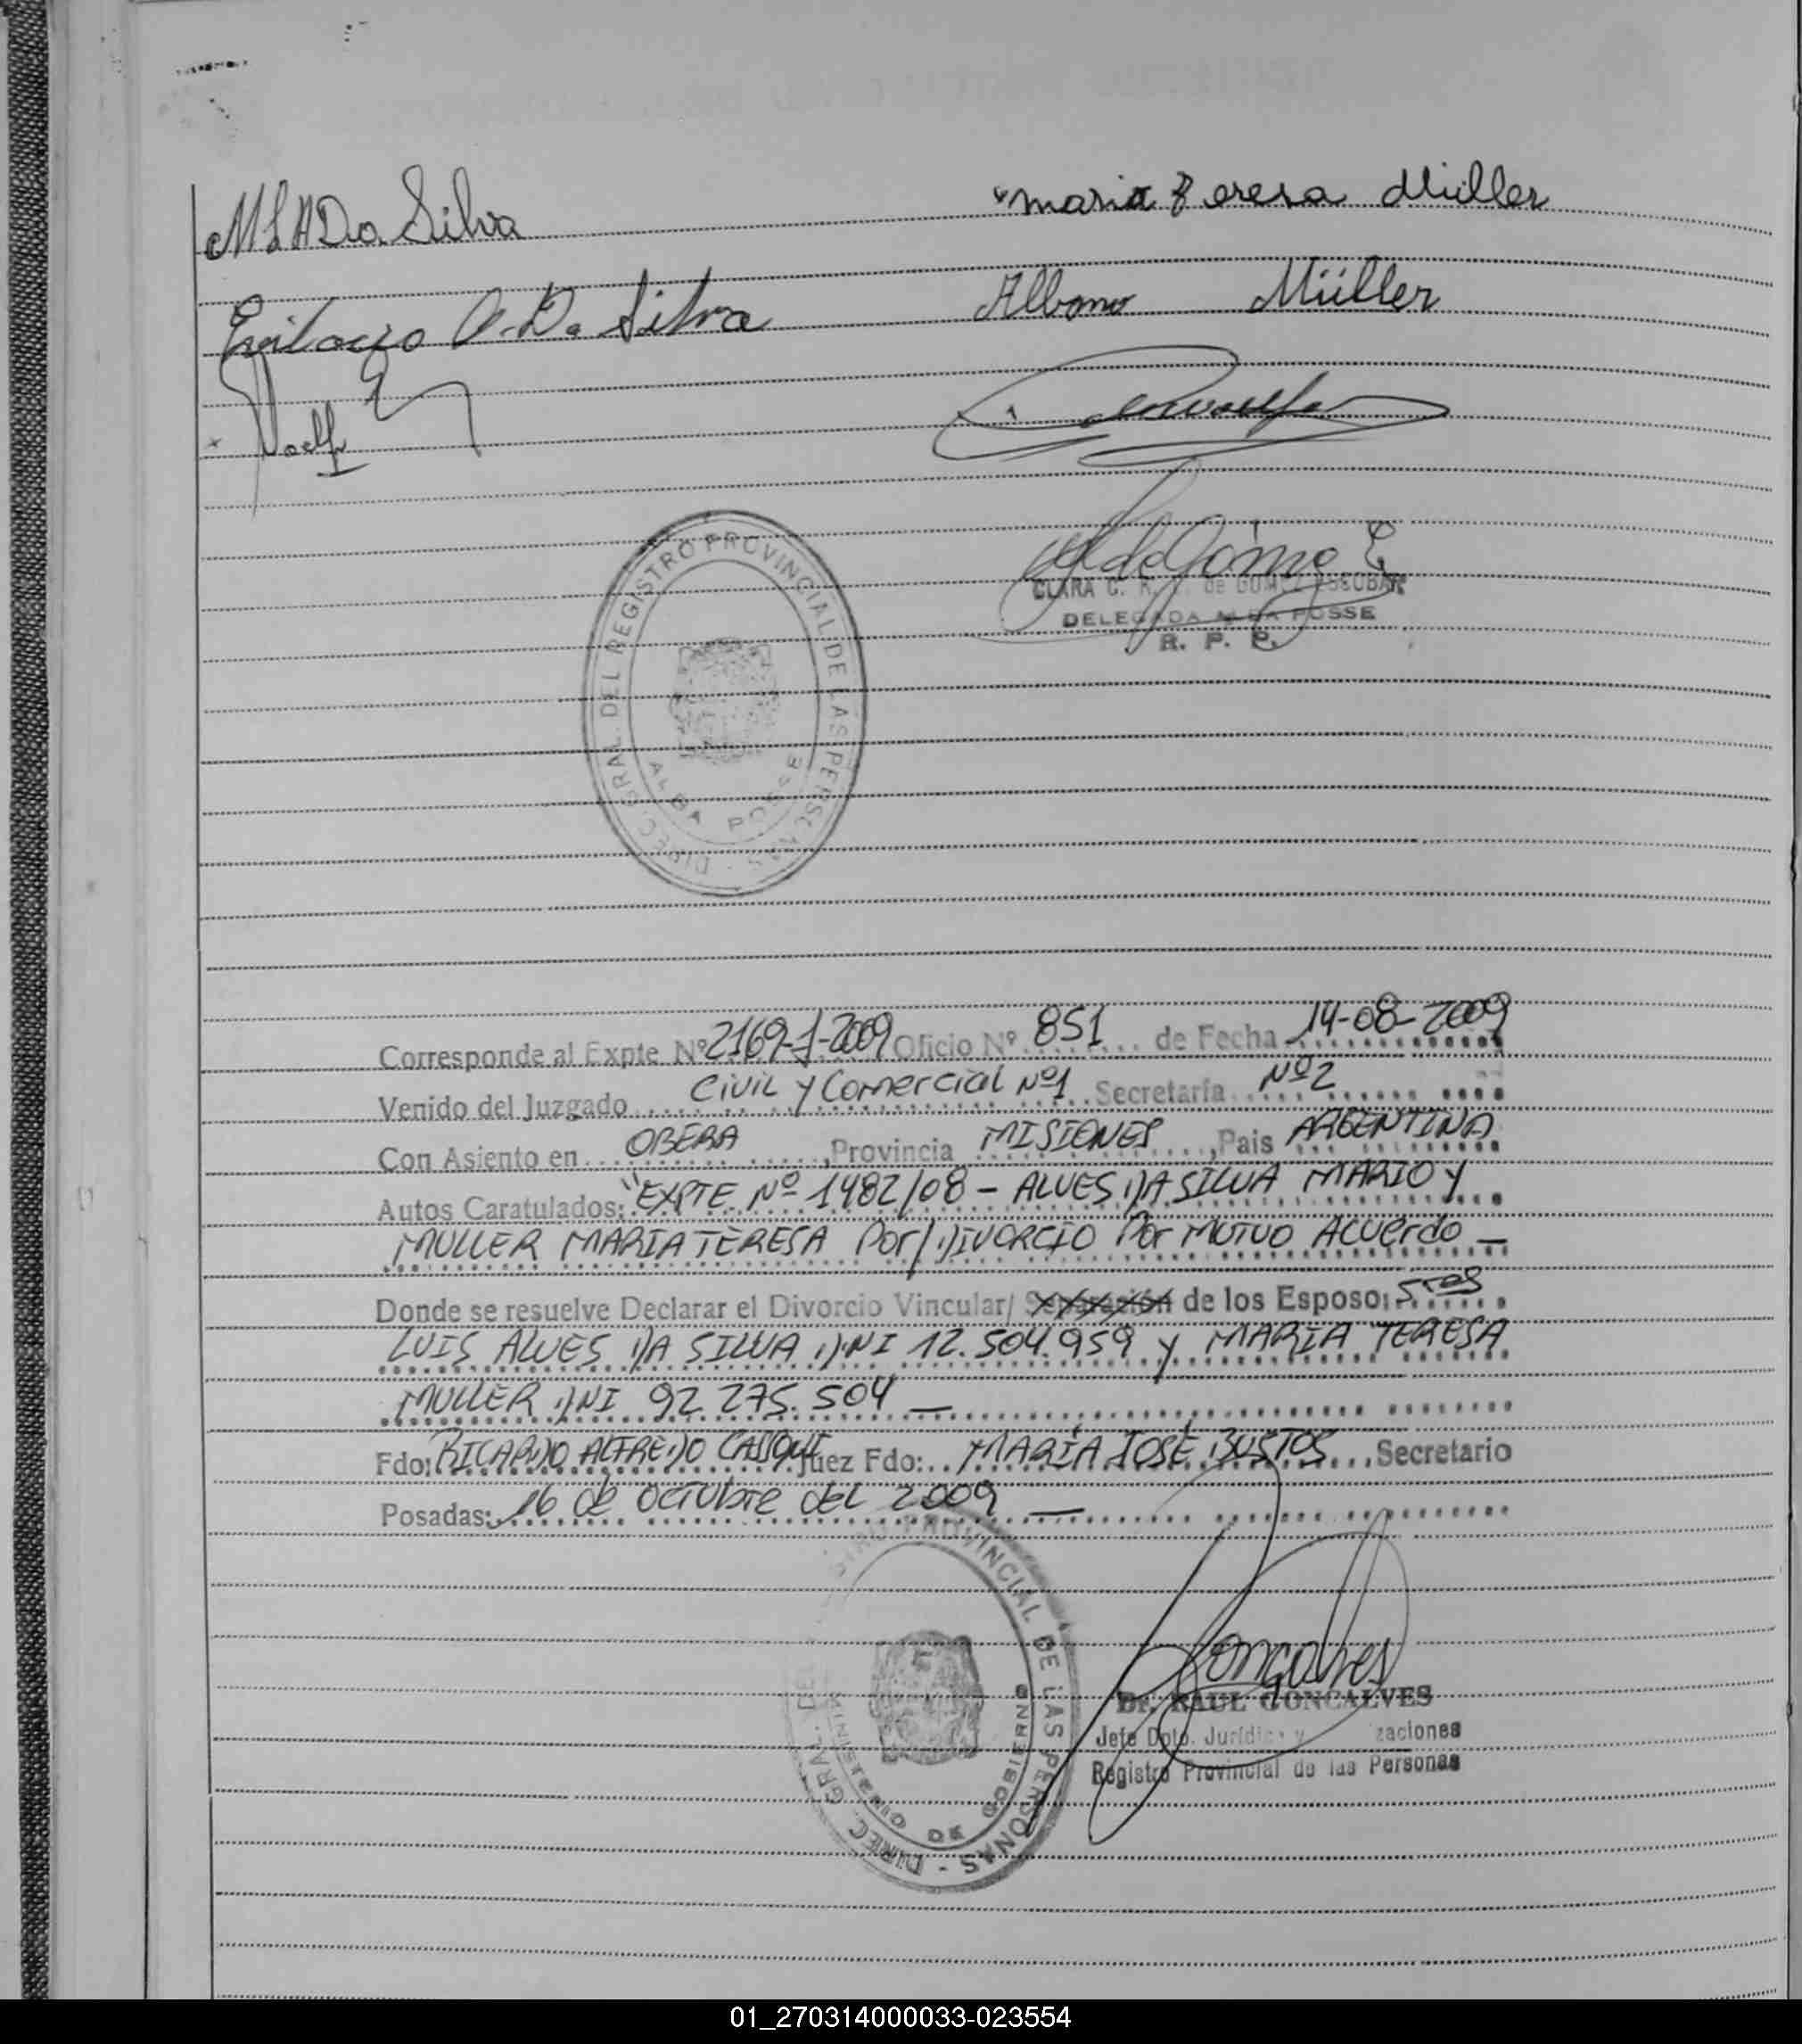 MLADa Silva
maria Teresa Müller
A. Da Silva
Albano Müller
DIREC. GRAL. DEL REGISTRO PROVINCIAL DE LAS PERSONAS
ALBA POSSE
CLARA C. de GOMEZ ESCOBAR
DELEGADA ALBA POSSE
R. P. P.
Corresponde al Expte Nº 2169-J-2009 Oficio Nº 851 de Fecha 14-08-2009
Venido del Juzgado Civil y Comercial Nº1 Secretaría Nº2
Con Asiento en OBERA, Provincia MISIONES, Pais ARGENTINA
Autos Caratulados: "EXPTE Nº 1482/08 - ALVES DA SILVA MARIO Y
MULLER MARIA TERESA Por/DIVORCIO Por MUTUO ACUerdo —
Donde se resuelve Declarar el Divorcio Vincular/ Separación de los Esposo: Sres
LUIS ALVES DA SILVA DNI 12.504.959 y MARIA TERESA
MULLER DNI 92 275.504 —
Fdo: RICARDO ALFREDO CASQUE Juez Fdo: MARÍA JOSÉ BUSTOS Secretario
Posadas: 16 de octubre del 2009 —
DIREC. GRAL. DEL PROVINCIAL DE LAS PERSONAS -
MINISTERIO DE GOBIERNO
Gonçalves
Dr. RAUL GONCALVES
Jefe Dpto. Jurídico y zaciones
Registro Provincial de las Personas
01_270314000033-023554